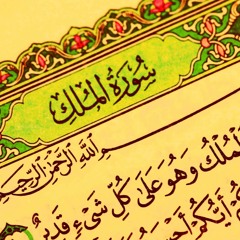 سُورَةُ المُلْكِ
بِسْمِ اللَّهِ الرَّحْمَٰنِ الرَّحِيمِ
المُلْكُ وَهُوَ عَلَىٰ كُلِّ شَيْءٍ قَدِيرٌ
أَيُّكُمْ